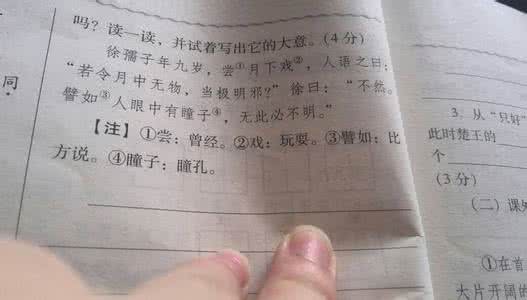 吗？读一读，并试着写出它的大意。(4分)
徐孺子年九岁，尝①月下戏②，人语之曰：
“若令月中无物，当极明邪？”徐曰：“不然。
譬如③人眼中有瞳子④，无此必不明。”
【注】①尝：曾经。②戏：玩耍。③譬如：比
方说。④瞳子：瞳孔。
同
3. 从“只好”
此时楚王的
个
(3分)
(二) 课外
①在首
大片开阔的